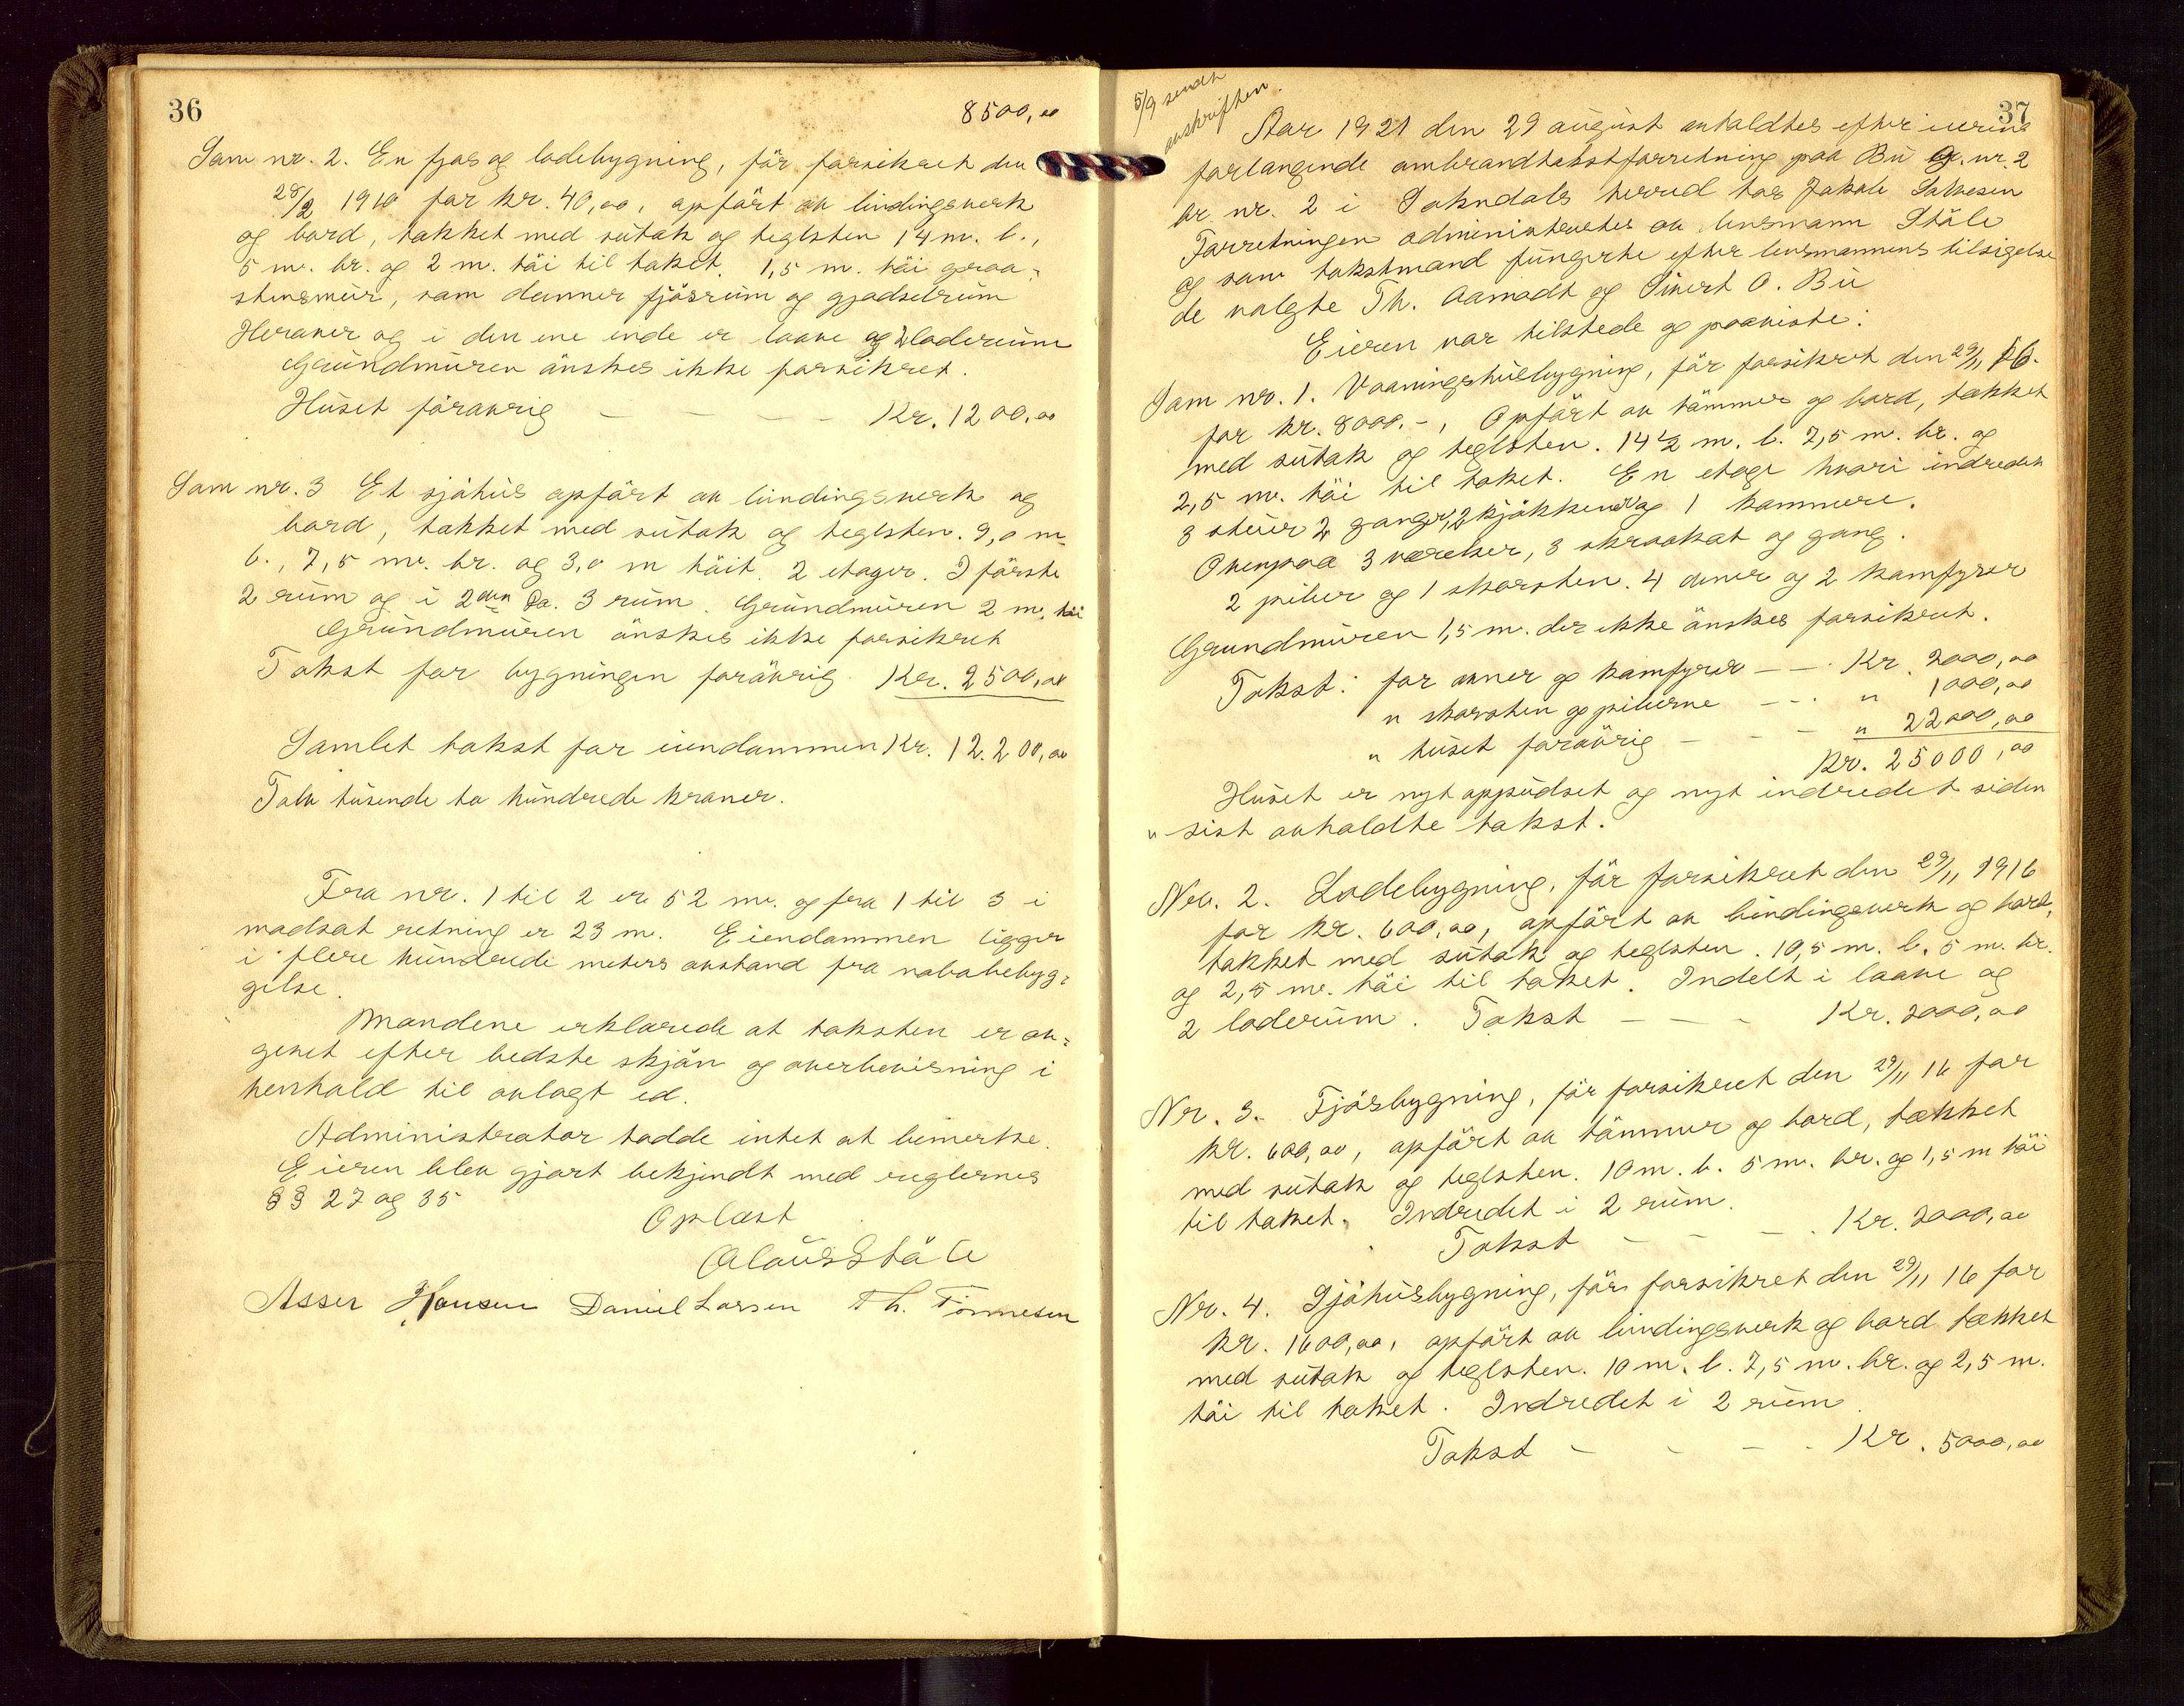 36
8500,00
Som nr. 2. En fjøs og ladebygning, før forsikret den
28/2 1910 for kr. 40,00, opført av bindingsverk
og bord, tækket med sutak og teglsten 14 m. l.,
5 m. br. og 2 m. høi til taket. 1,5 m. høi graa-
stensmur, som danner fjøsrum og gjødselrum
Herover og i den ene ende er laave og 2 laderum
Grundmuren ønskes ikke forsikret.
Huset forøvrig — — — — Kr. 1200,00
Som nr. 3 Et sjøhus opført av bindingsverk og
bord, tækket med sutak og teglsten. 9,0 m.
l., 7,5 m. br. og 3,0 m høit. 2 etager. I første
2 rum og i 2den Do. 3 rum. Grundmuren 2 m. høi
Grundmuren ønskes ikke forsikret
Takst for bygningen forøvrig Kr. 2500,00
Samlet takst for eiendommen Kr. 12.200,00
Tolv tusende to hundrede kroner.
Fra nr. 1 til 2 er 52 m. og fra 1 til 3 i
modsat retning er 23 m. Eiendommen ligger
i flere hundrede meters avstand fra nabobebyg-
gelse.
Mændene erklærede at taksten er av-
givet efter bedste skjøn og overbevisning i
henhold til avlagt ed.
Administrator hadde intet at bemerke.
Eieren blev gjort bekjendt med reglernes
§§ 27 og 35
Oplæst
Olaus Støle
Asser Hansen Daniel Larsen Th. Tönnesen
37
5/9 sendt
avskriften.
Aar 1921 den 29 august avholdtes efter eierens
forlangende ombrandtakstforretning paa Bu G. nr. 2
br. nr. 2 i Sokndals herred hos Jakob Salvesen
Forretningen administrertes av lensmann Støle
og som takstmænd fungerte efter lensmannens tilsigelse
de valgte Th. Aamodt og Sivert O. Bu
Eieren var tilstede og paaviste:
Som nr. 1. Vaaningshusbygning, før forsikret den 29/11 16.
for kr. 8000.-, Opført av tømmer og bord, tækket
med sutak og teglsten. 14 1/2 m. l. 7,5 m. br. og
2,5 m. høi til taket. En etage hvori indredet
3 stuer 2 ganger, 2 kjøkkener og 1 kammere.
Ovenpaa 3 værelser, 3 skraakot og gang.
2 piber og 1 skorsten. 4 ovner og 2 komfyrer
Grundmuren 1,5 m. der ikke ønskes forsikret.
Takst: for ovner og komfyrer — — Kr. 2000,00
" skorsten og piberne — — " 1000,00
" huset forøvrig — — — " 22000,00
Kr. 25000,00
Huset er nyt oppudset og nyt indredet siden
" sist avholdte takst.
Nr. 2. Ladebygning, før forsikret den 29/11 1916
for kr. 600,00, opført av bindingsverk og bord,
tækket med sutak og teglsten. 10,5 m. l. 5 m. br.
og 2,5 m. høi til taket. Indelt i laave og
2 laderum. Takst — — — Kr. 2000,00
Nr. 3. Fjøsbygning, før forsikret den 29/11 16 for
kr. 600,00, opført av tømmer og bord, tækket
med sutak og teglsten. 10 m. l. 5 m. br. og 1,5 m høi
til taket. Indredet i 2 rum.
Takst — — — Kr. 2000,00
Nr. 4. Sjøhusbygning, før forsikret den 29/11 16 for
kr. 1600,00, opført av bindingsverk og bord tækket
med sutak og teglsten. 10 m. l. 7,5 m. br. og 2,5 m.
høi til taket. Indredet i 2 rum.
Takst — — — Kr. 5000,00